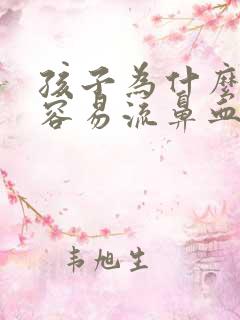 孩子為什麼
容易流鼻血
韦旭生